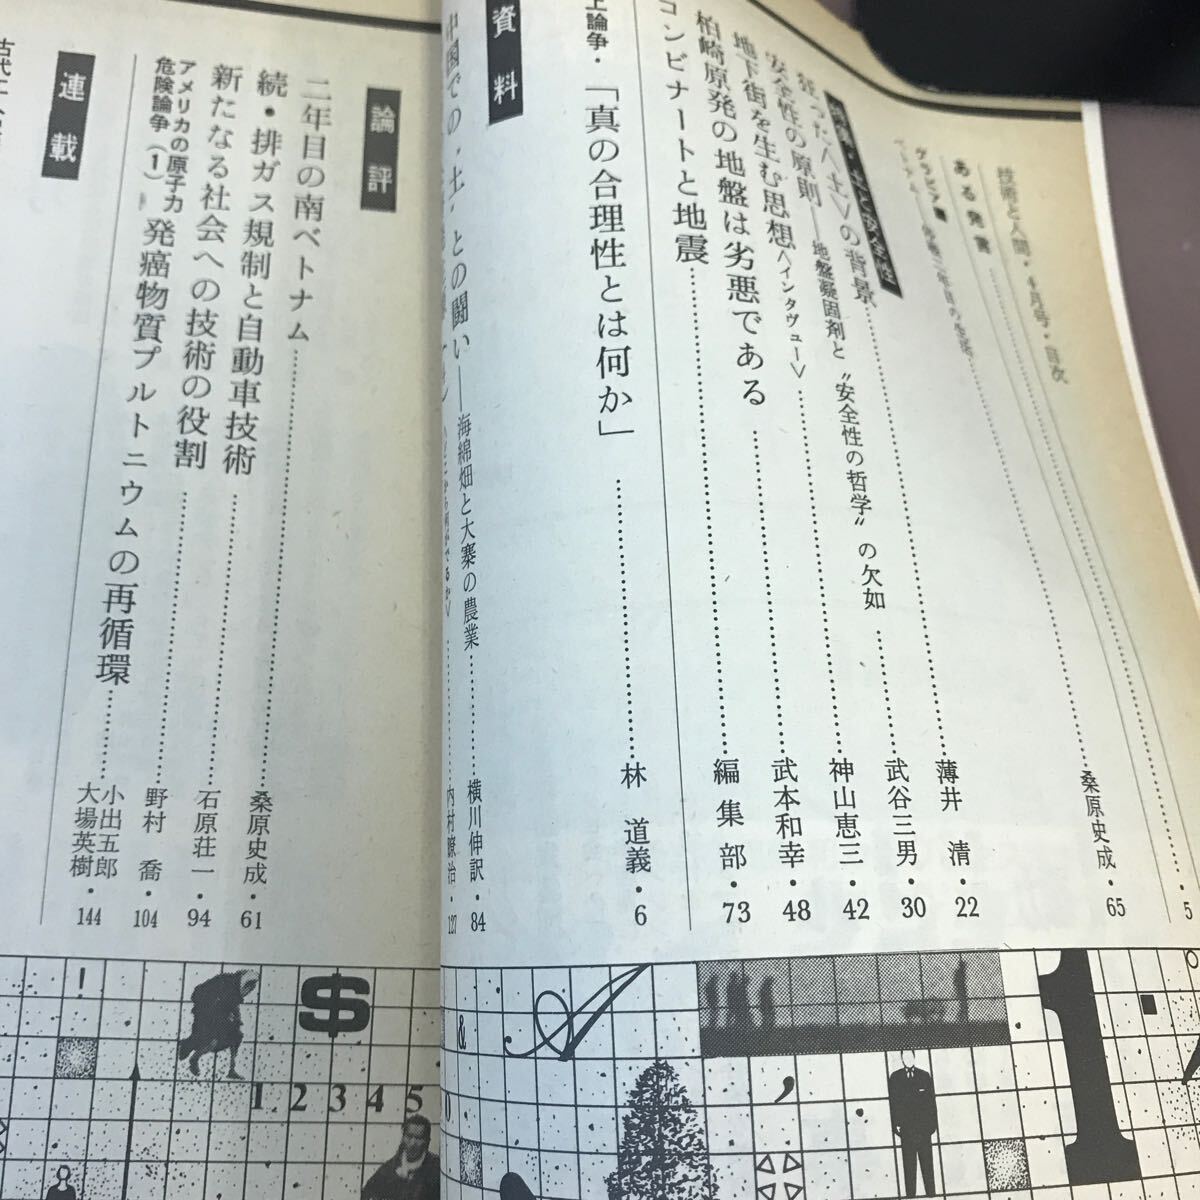 技術と人間・4月号・目次
5
ある発言
グラビア
桑原史成・65
土と安全性
狂った〈土〉の背景
薄井 清・22
安全性の原則──地盤凝固剤と〝安全性の哲学〟の欠如
武谷三男・30
地下街を生む思想〈インタヴュー〉
神山恵三・42
柏崎原発の地盤は劣悪である
武本和幸・48
コンビナートと地震
編集部・73
上論争・「真の合理性とは何か」
林 道義・6
資料
中国での・土・との闘い──海綿畑と大寨の農業
横川伸訳・84
内村瞭治・127
論評
二年目の南ベトナム
桑原史成・61
続・排ガス規制と自動車技術
石原荘一・94
新たなる社会への技術の役割
野村 喬・104
アメリカの原子力危険論争(1) 発癌物質プルトニウムの再循環
小出五郎
大場英樹・144
連載
古代
!
$
1 2 3 4 5
&
A
,
1